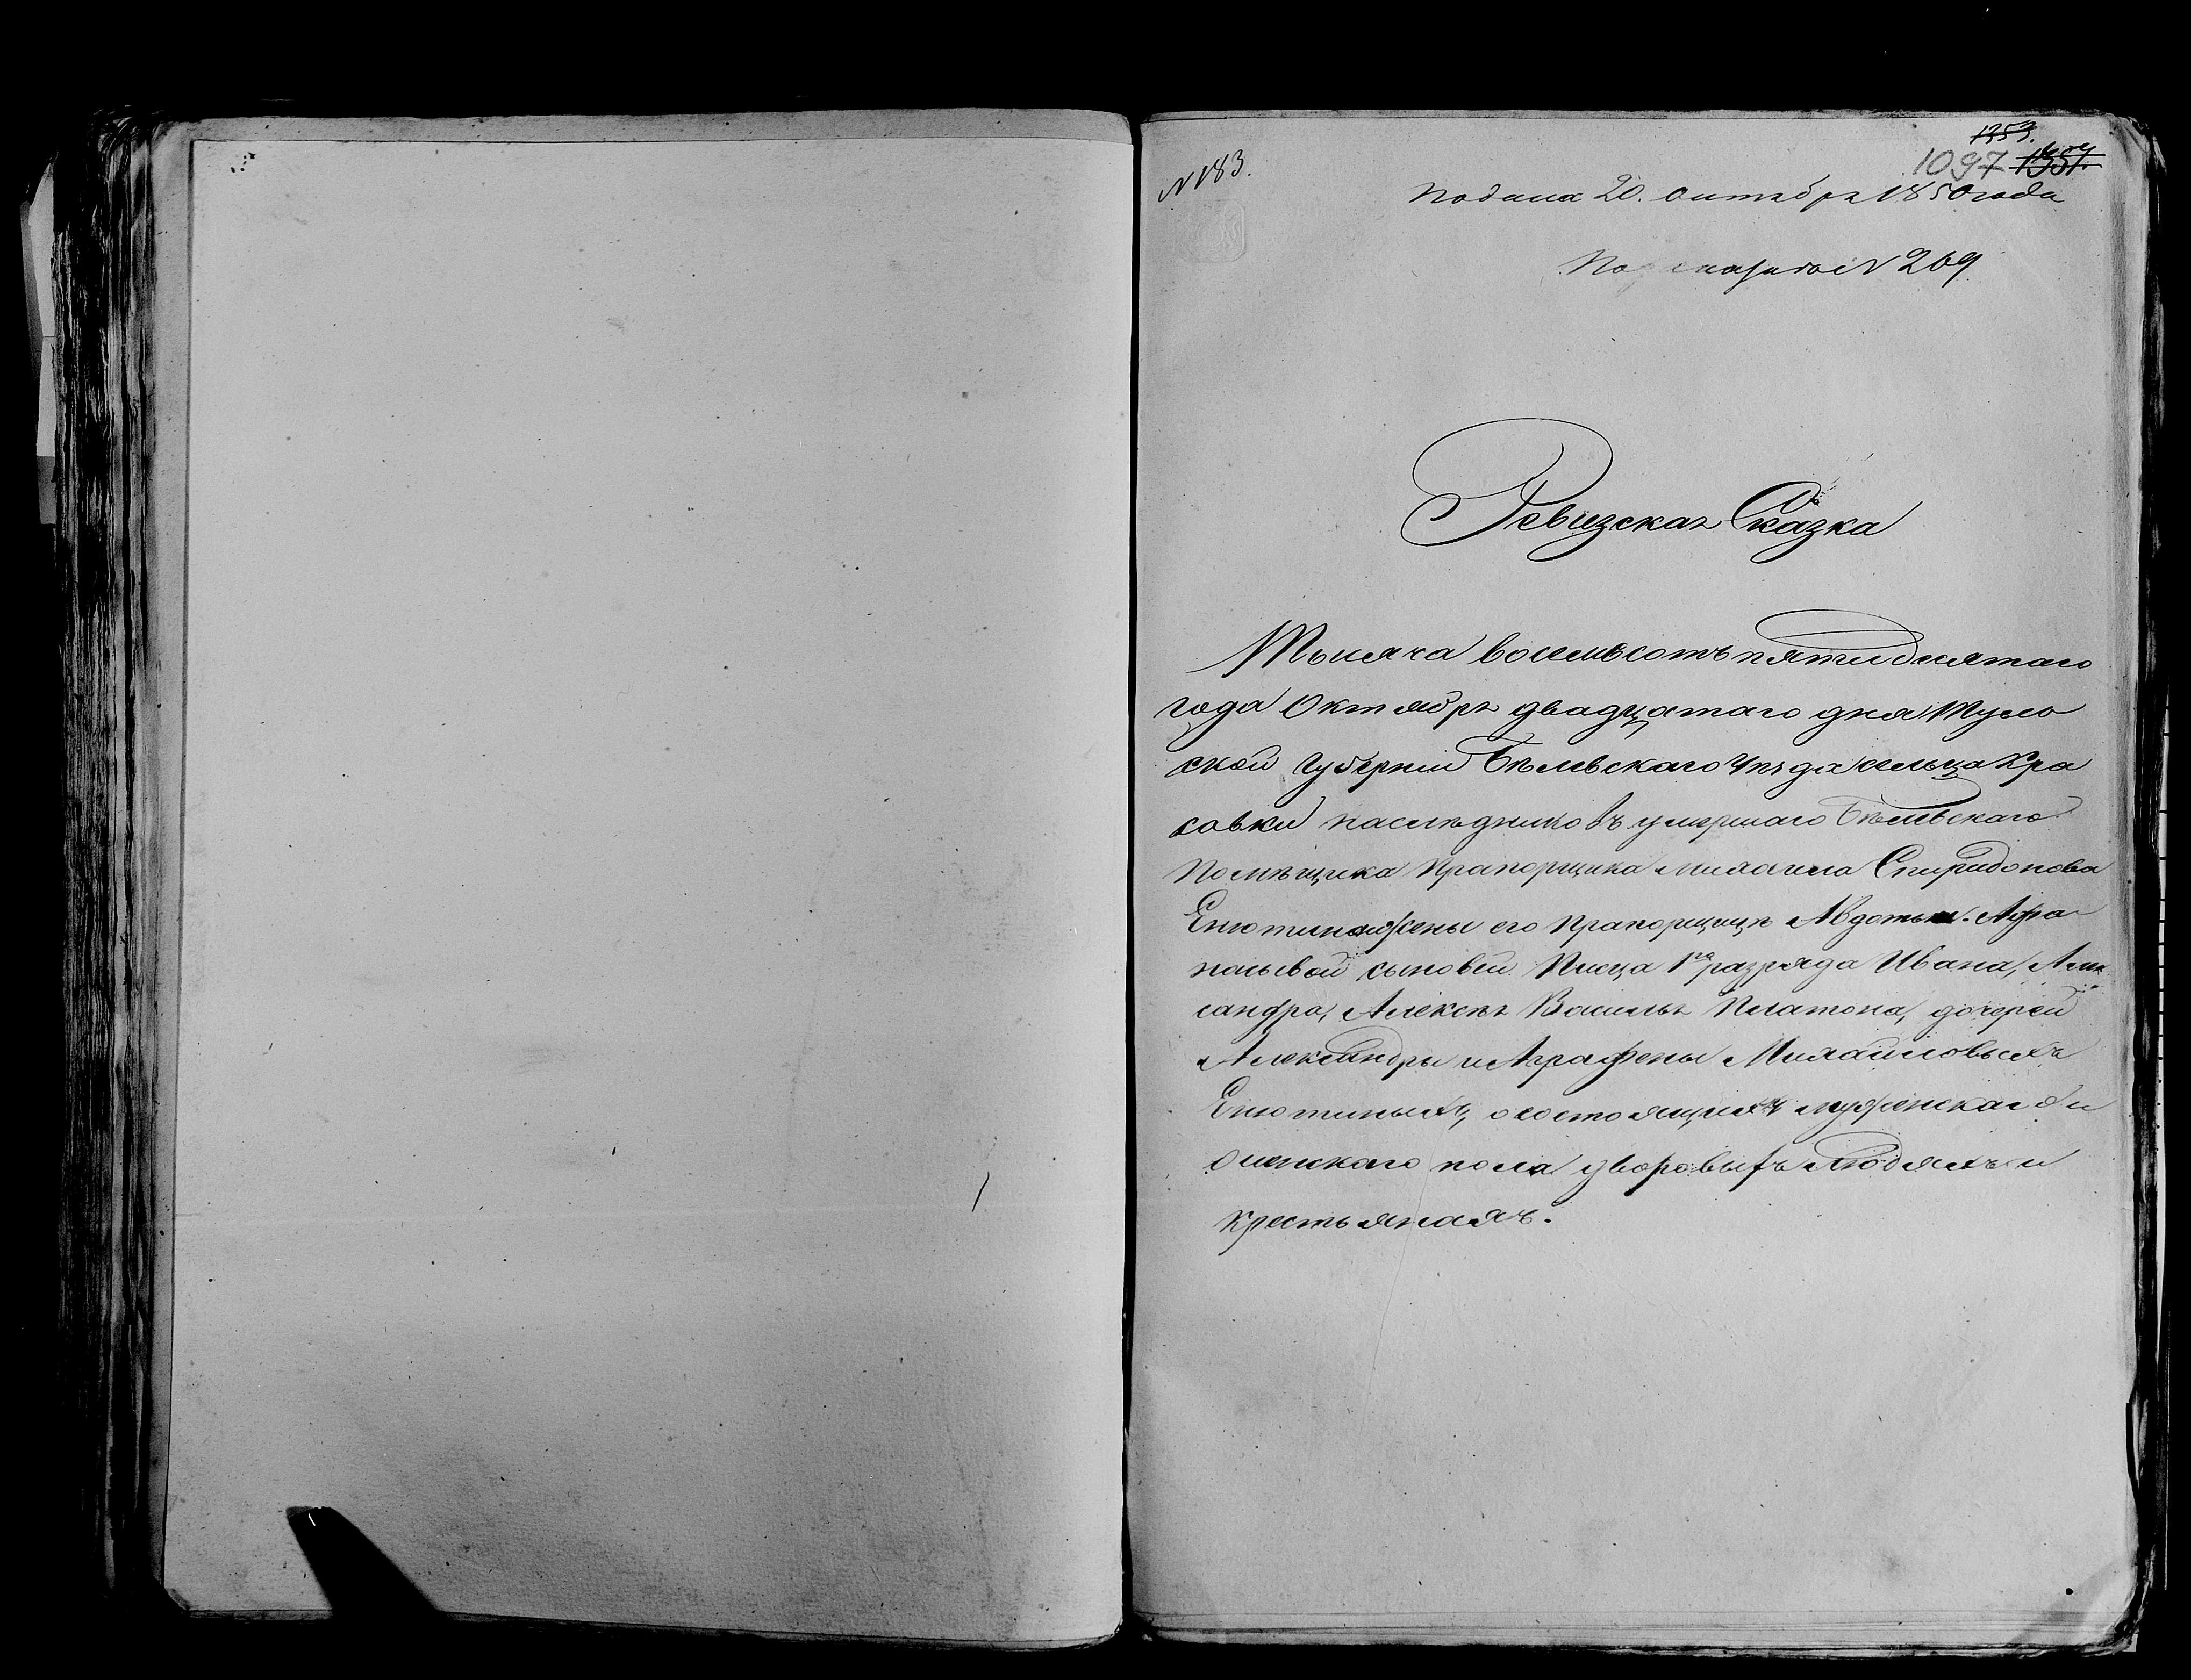 1353.
N 183.
1097 1351.
Подана 20. октября 1850 года
По N 269
Ревизская Сказка
Тысяча восемьсотъ пятидесятаго
года Октября двадцатаго дня Туль
ской Губерніи Бѣлевскаго Уѣзда сельца Кра
совки наслѣдниковъ умершаго Бѣлевскаго
Помѣщика Прапорщика Михаила Спиридонова
Енютина жены его Прапорщицы Авдотьи Афа
насьевой сыновей Писца 1го разряда Ивана, Алек
сандра, Алексѣя Василья Платона, дочерей
Александры и Аграфены Михайловыхъ
Енютиныхъ, о состоящихъ мужескаго и
женскаго пола дворовыхъ людяхъ и
крестьянахъ.